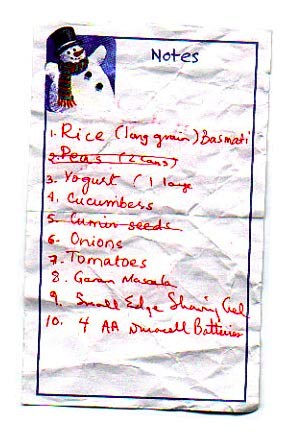 Notes
1. Rice (long grain) Basmati
2. Peas (2 cans)
3. Yogurt (1 large
4. Cucumbers
5. Cumin seeds
6. Onions
7. Tomatoes
8. Garam Masala
9. Small Edge Shaving Gel
10. 4 AA Duracell Batteries